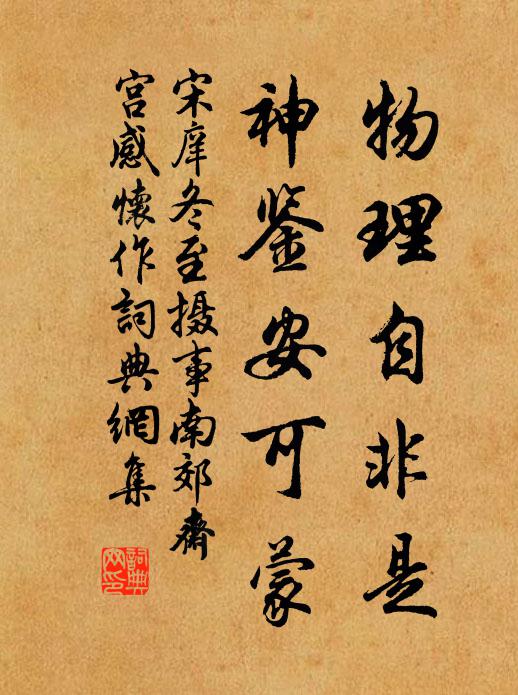 物理自非是
神鉴安可蒙
宋庠冬至摄事南郊斋
宫感懷作詞典網集
詞典
网印